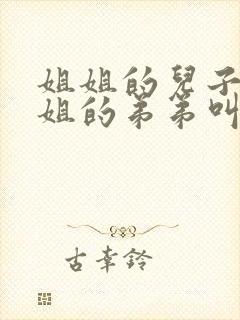 姐姐的兒子
姐的弟弟叫
古幸鈴